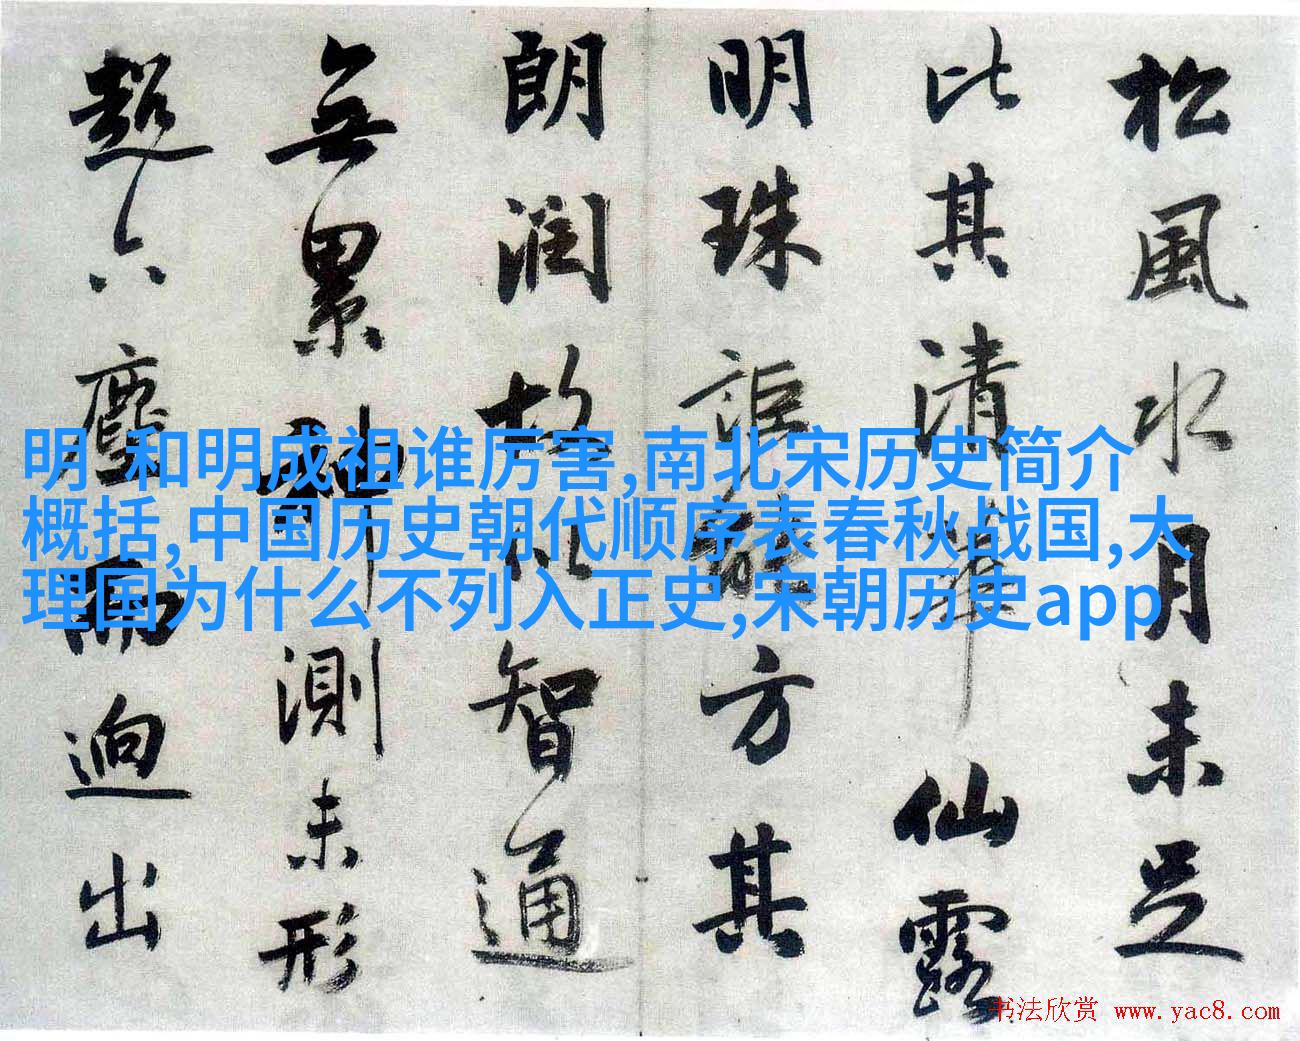 松風水月未足
比其清華仙露
明珠詎能方其
朗潤故以智通
無累神測未形
超六塵而迥出
明 和明成祖谁厉害,南北宋历史简介
概括,中国历史朝代顺序表春秋战国,大
理国为什么不列入正史,宋朝历史app
书法欣赏 www.yac8.com